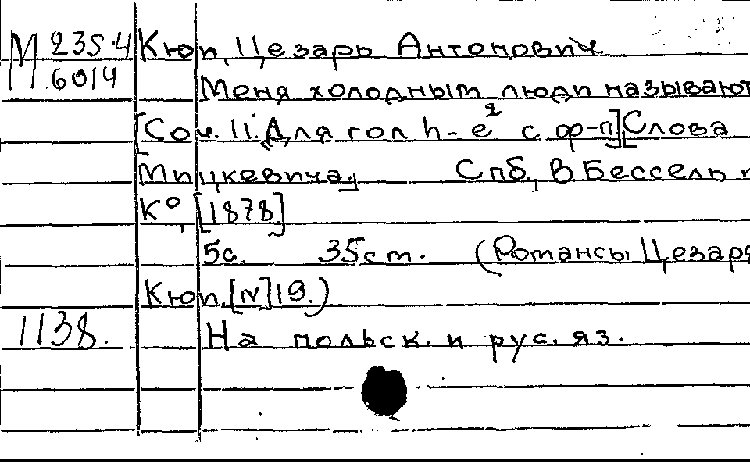 М 235-4 Кюи, Цезарь Антонович
6014 Меня холодным люди называют
[Соч. 11. Для гол h-e² с ф-п] [Слова
Мицкевича.] Спб., В Бессель и
К⁰, [1878.]
5с. 35 см. (Романсы Цезаря
Кюи. [IV] 19.)
1138. На польск. и рус. яз.